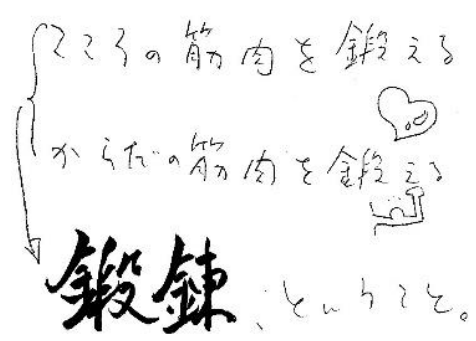 こころの筋肉を鍛える
からだの筋肉を鍛える
鍛錬、ということ。